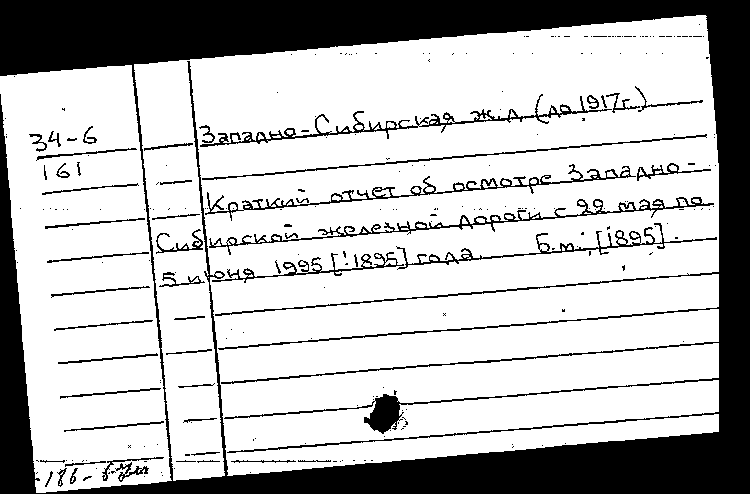 34-6
161
Западно-Сибирская ж.д. (до 1917г.)
Краткий отчет об осмотре Западно-
Сибирской железной дороги с 22 мая по
5 июня 1995 [!1895] года. Б.м., [1895].
-186-